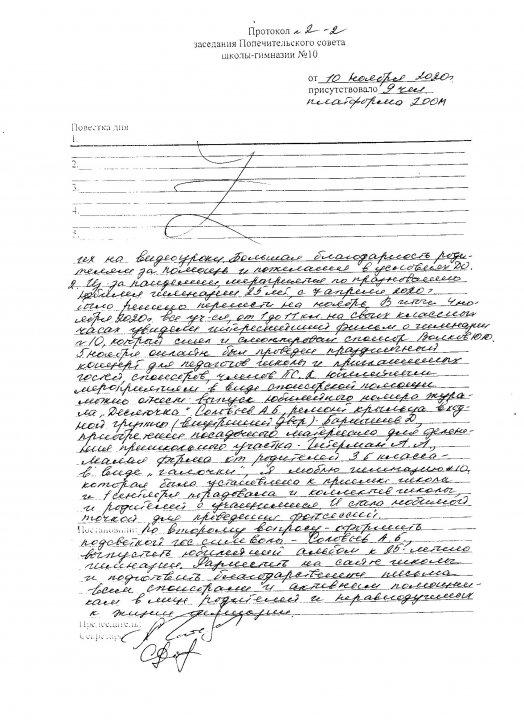 Протокол № 2-2
заседания Попечительского совета
школы-гимназии №10
от 10 ноября 2020г
присутствовало 9 чел
платформа ZOOM
Повестка дня
1.
2.
3.
4.
5.
их на видеоуроки. Большая благодарность роди-
телям за помощь и пожелания в условиях ДО.
2. Из за пандемии мероприятия по празднованию
юбилея гимназии 25 лет с 7 апреля 2020г
было решено перенести на ноябрь. В итоге 4 но-
ября 2020г все уч-ся, от 1 до 11 кл на своих классных
часах увидели интереснейший фильм о гимназии
№10, который снял и смонтировал спонсор Волков Ю.Ю.
5 ноября онлайн был проведен праздничный
концерт для педагогов школы и приглашенных
гостей, спонсоров, членов ПС. К юбилейным
мероприятиям в виде спонсорской помощи
можно отнести выпуск юбилейного номера журна-
ла, Соловьев А.Б, ремонт крыльца вход-
ной группы (внутренний двор)
приобретение посадочного материала для озелене-
ния пришкольного участка
Малая форма от родителей 3 б класса -
в виде "галочки", Я люблю гимназию 10,
которая была установлена к приемке школы
и 1 сентября порадовала и коллектив школы
и родителей с учащимися. И стала любимой
точкой для проведения фотосессий.
Постановили: По второму вопросу - оформить
подсветкой гос символы - Соловьев А.Б,
выпустить юбилейный альбом к 25-летию
гимназии. Разместить на сайте школы
и подготовить благодарственные письма
всем спонсорам и активным помощни-
кам в лице родителей и неравнодушных
к жизни гимназии.
Председатель
Секретарь